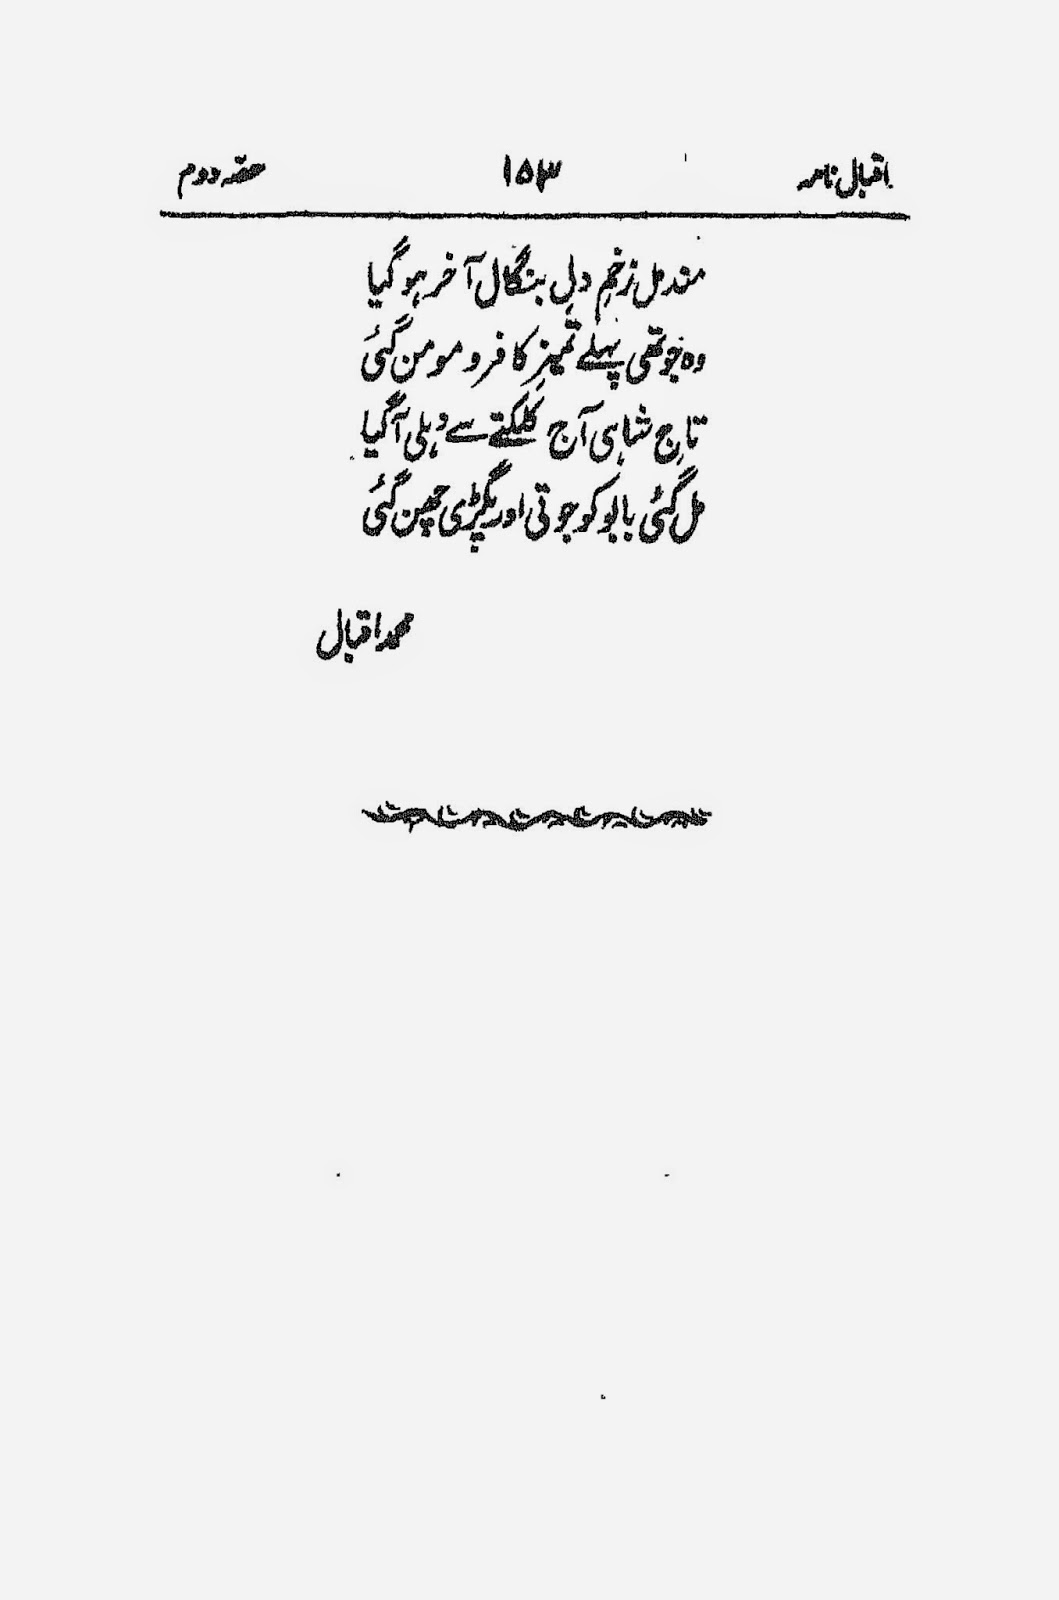 اقبال نامہ ۱۵۳ حصّہ دوم
مندمل زخمِ دلِ بنگال آخر ہو گیا
وہ جو تھی پہلے تمیزِ کافر و مومن گئی
تاجِ شاہی آج کلکتے سے دہلی آ گیا
مل گئی بابو کو جوتی اور پگڑی چھن گئی
محمد اقبال